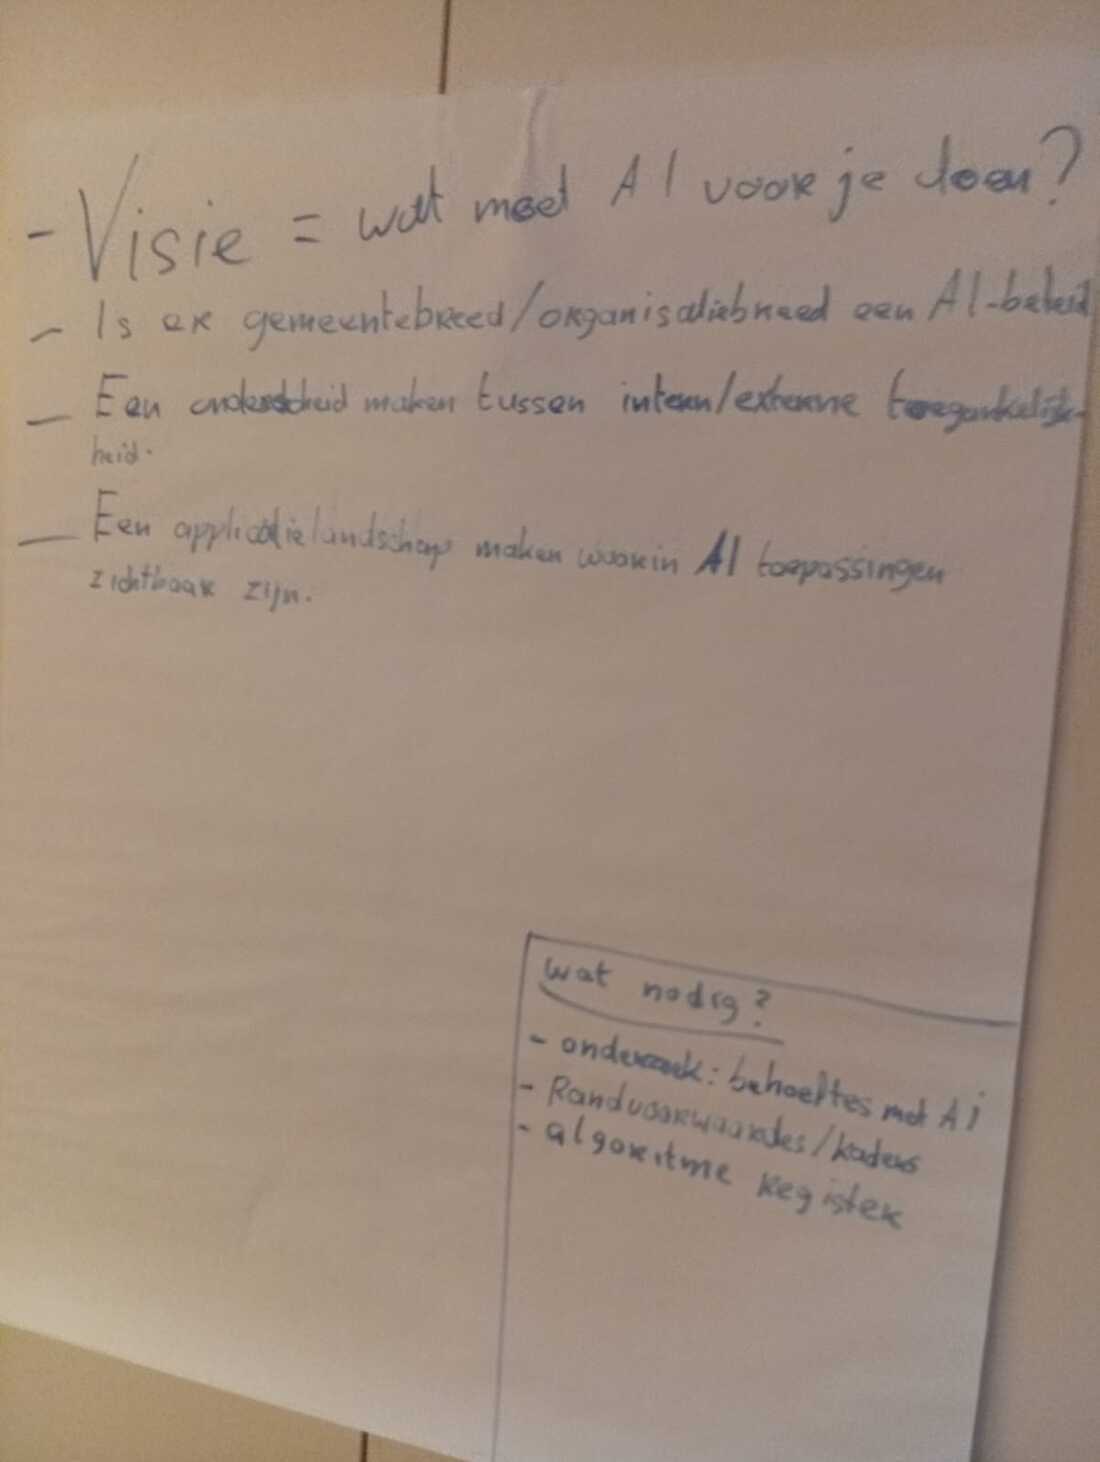 - Visie = wat moet AI voor je doen?
- Is er gemeentebreed/organisatiebreed een AI-beleid
- Een onderscheid maken tussen intern/externe toegankelijk-
heid.
- Een applicatielandschap maken waarin AI toepassingen
zichtbaar zijn.
wat nodig?
- onderzoek: behoeftes met AI
- Randvoorwaardes/kaders
- algoritme register